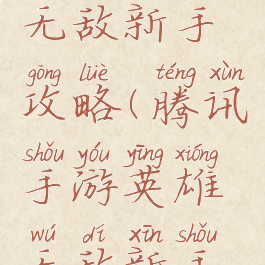 无敌新手
gōng lüè téng xùn
攻略(腾讯
shǒu yóu yīng xióng
手游英雄
wú dí xīn shǒu
无敌新手